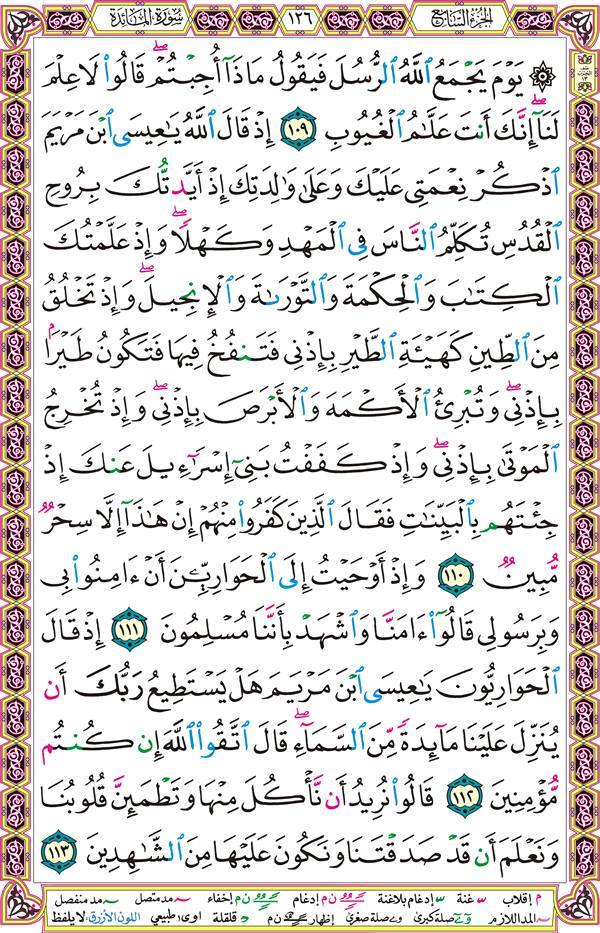 الجزء السابع
١٢٦
سورة المائدة
۞ يَوْمَ يَجْمَعُ ٱللَّهُ ٱلرُّسُلَ فَيَقُولُ مَاذَآ أُجِبْتُمْ ۖ قَالُوا۟ لَا عِلْمَ
لَنَآ ۖ إِنَّكَ أَنتَ عَلَّـٰمُ ٱلْغُيُوبِ ١٠٩ إِذْ قَالَ ٱللَّهُ يَـٰعِيسَى ٱبْنَ مَرْيَمَ
ٱذْكُرْ نِعْمَتِى عَلَيْكَ وَعَلَىٰ وَٰلِدَتِكَ إِذْ أَيَّدتُّكَ بِرُوحِ
ٱلْقُدُسِ تُكَلِّمُ ٱلنَّاسَ فِى ٱلْمَهْدِ وَكَهْلًا ۖ وَإِذْ عَلَّمْتُكَ
ٱلْكِتَـٰبَ وَٱلْحِكْمَةَ وَٱلتَّوْرَىٰةَ وَٱلْإِنجِيلَ ۖ وَإِذْ تَخْلُقُ
مِنَ ٱلطِّينِ كَهَيْـَٔةِ ٱلطَّيْرِ بِإِذْنِى فَتَنفُخُ فِيهَا فَتَكُونُ طَيْرًۢا
بِإِذْنِى ۖ وَتُبْرِئُ ٱلْأَكْمَهَ وَٱلْأَبْرَصَ بِإِذْنِى ۖ وَإِذْ تُخْرِجُ
ٱلْمَوْتَىٰ بِإِذْنِى ۖ وَإِذْ كَفَفْتُ بَنِىٓ إِسْرَٰٓءِيلَ عَنكَ إِذْ
جِئْتَهُم بِٱلْبَيِّنَـٰتِ فَقَالَ ٱلَّذِينَ كَفَرُوا۟ مِنْهُمْ إِنْ هَـٰذَآ إِلَّا سِحْرٌ
مُّبِينٌ ١١٠ وَإِذْ أَوْحَيْتُ إِلَى ٱلْحَوَارِيِّـۧنَ أَنْ ءَامِنُوا۟ بِى
وَبِرَسُولِى قَالُوٓا۟ ءَامَنَّا وَٱشْهَدْ بِأَنَّنَا مُسْلِمُونَ ١١١ إِذْ قَالَ
ٱلْحَوَارِيُّونَ يَـٰعِيسَى ٱبْنَ مَرْيَمَ هَلْ يَسْتَطِيعُ رَبُّكَ أَن
يُنَزِّلَ عَلَيْنَا مَآئِدَةً مِّنَ ٱلسَّمَآءِ ۖ قَالَ ٱتَّقُوا۟ ٱللَّهَ إِن كُنتُم
مُّؤْمِنِينَ ١١٢ قَالُوا۟ نُرِيدُ أَن نَّأْكُلَ مِنْهَا وَتَطْمَئِنَّ قُلُوبُنَا
وَنَعْلَمَ أَن قَدْ صَدَقْتَنَا وَنَكُونَ عَلَيْهَا مِنَ ٱلشَّـٰهِدِينَ ١١٣
م إقلاب غنة إدغام بلاغنة ن م إدغام ن م إخفاء مد متصل مد منفصل
المد اللازم صلة كبرى صلة صغرى إظهار ن م قلقلة اوى طبيعي اللون الأزرق لا يلفظ